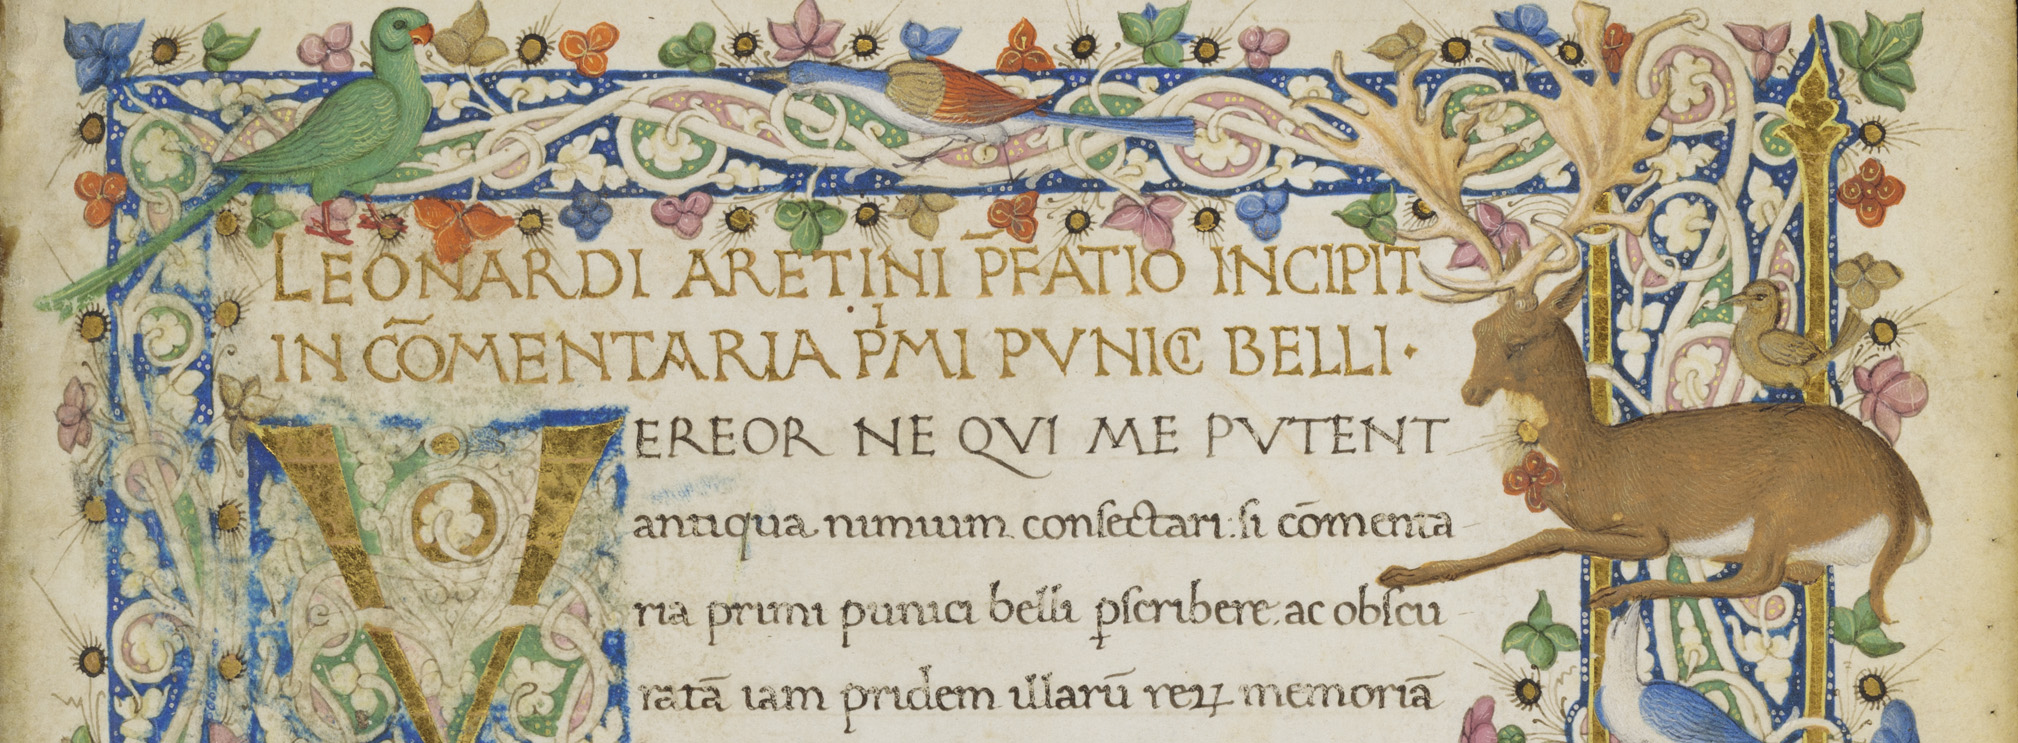 LEONARDI ARETINI P̄FATIO INCIPIT
IN CŌMENTARIA PIMI PVNICI BELLI·
VEREOR NE QVI ME PVTENT
antiqua nimium consectari: si cōmenta
ria primi punici belli ꝑscribere: ac obscu
ratā iam pridem illarū reꝝ memoriā